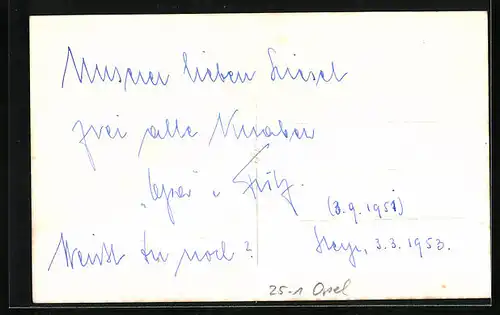 Unserer lieben Liesel
zwei alte Knaben
" u. Fritz.
(3.9.1951)
Steyr, 3.3.1953.
Weißt Du noch?
25-1 Opel